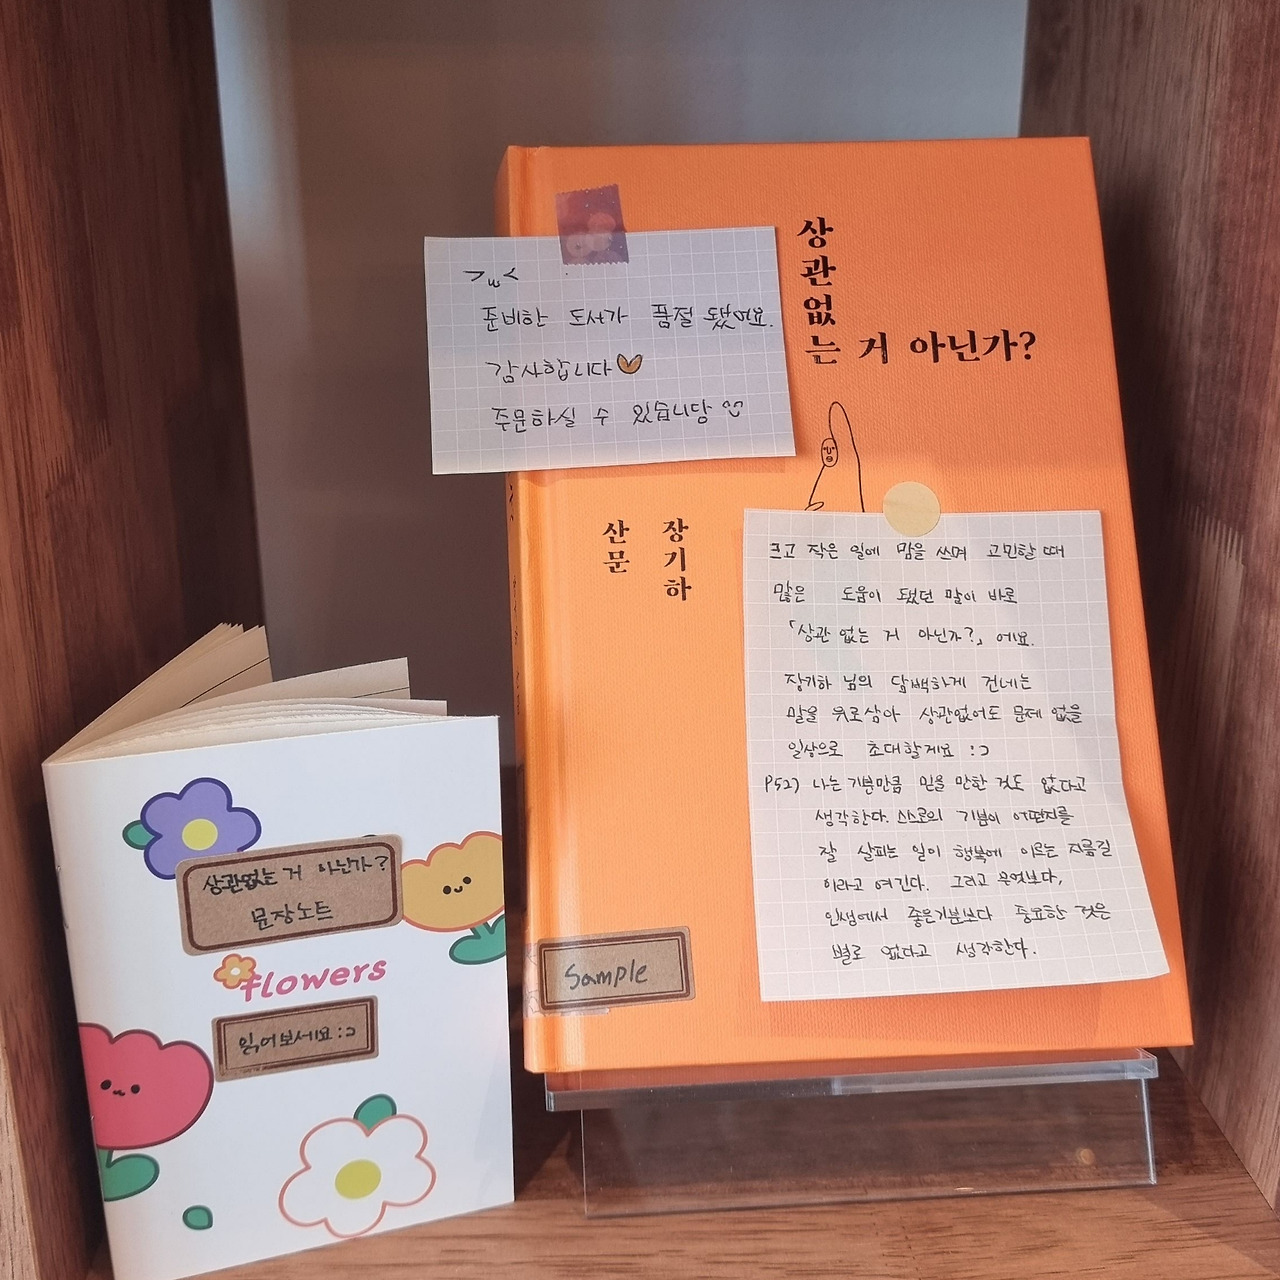 상관없는 거 아닌가?
>ω<
준비한 도서가 품절 됐어요.
감사합니다
주문하실 수 있습니당
산문
장기하
크고 작은 일에 맘을 쓰며 고민할 때
많은 도움이 됐던 말이 바로
「상관 없는 거 아닌가?」 에요.
장기하 님의 담백하게 건네는
말을 위로삼아 상관없어도 문제 없을
일상으로 초대할게요 :⊃
P52) 나는 기분만큼 믿을 만한 것도 없다고
생각한다. 스스로의 기분이 어떤지를
잘 살피는 일이 행복에 이르는 지름길
이라고 여긴다. 그리고 무엇보다,
인생에서 좋은기분보다 중요한 것은
별로 없다고 생각한다.
Sample
상관없는 거 아닌가?
문장노트
flowers
읽어보세요 :⊃